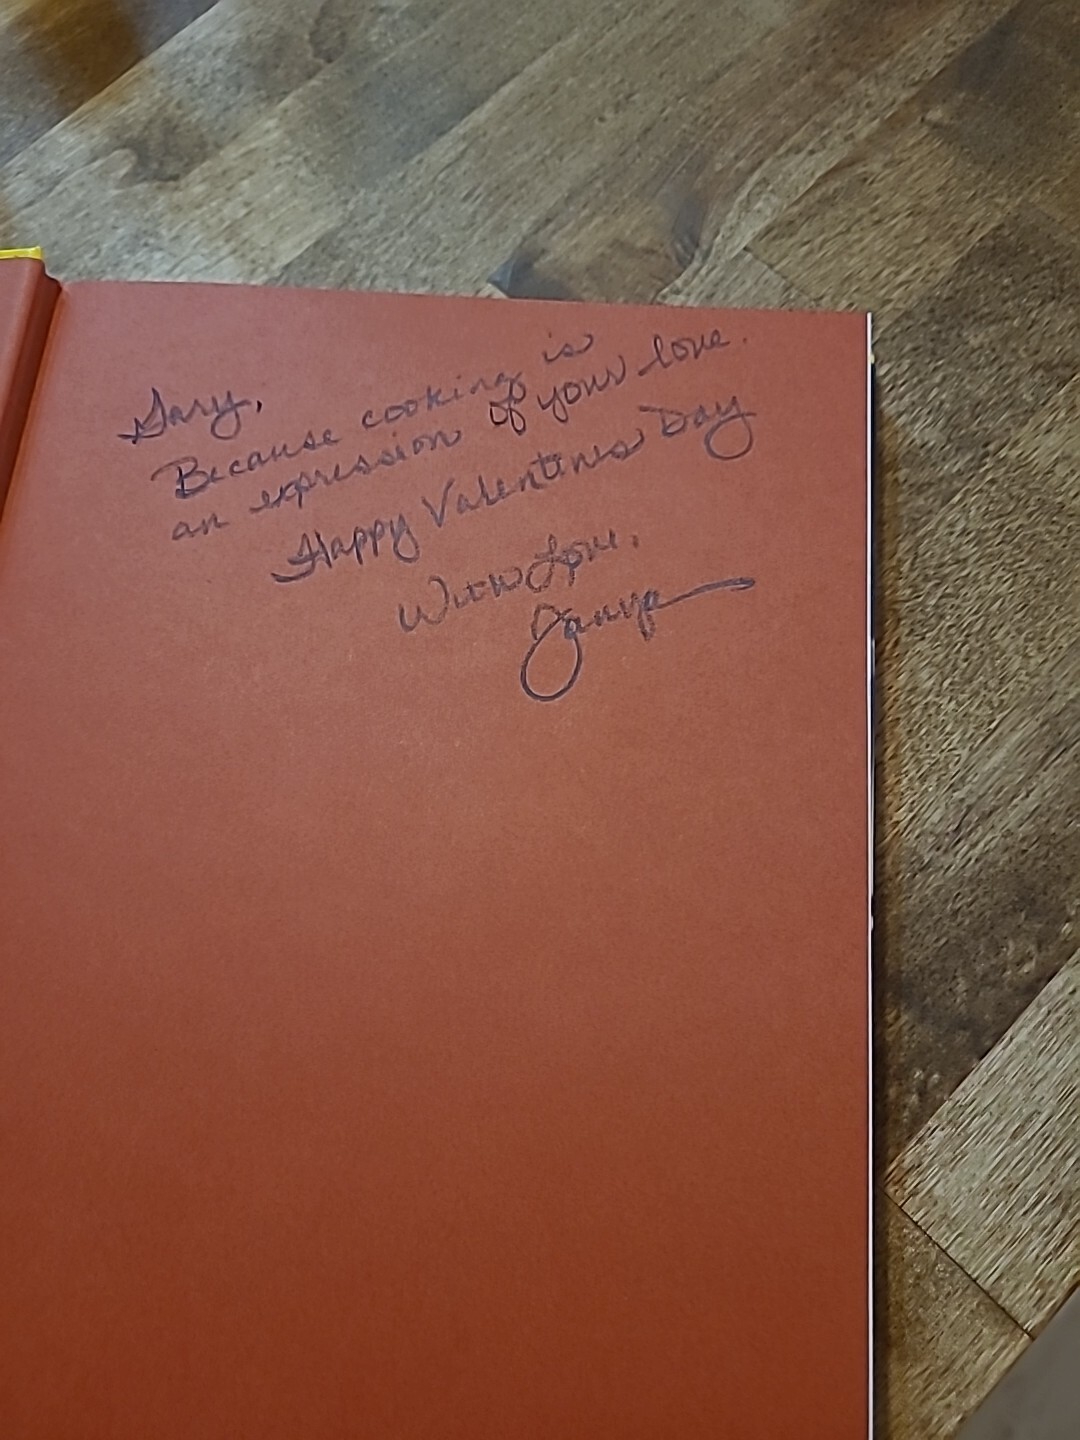 Gary,
Because cooking is
an expression of your love.
Happy Valentines Day
With Love,
Tanya